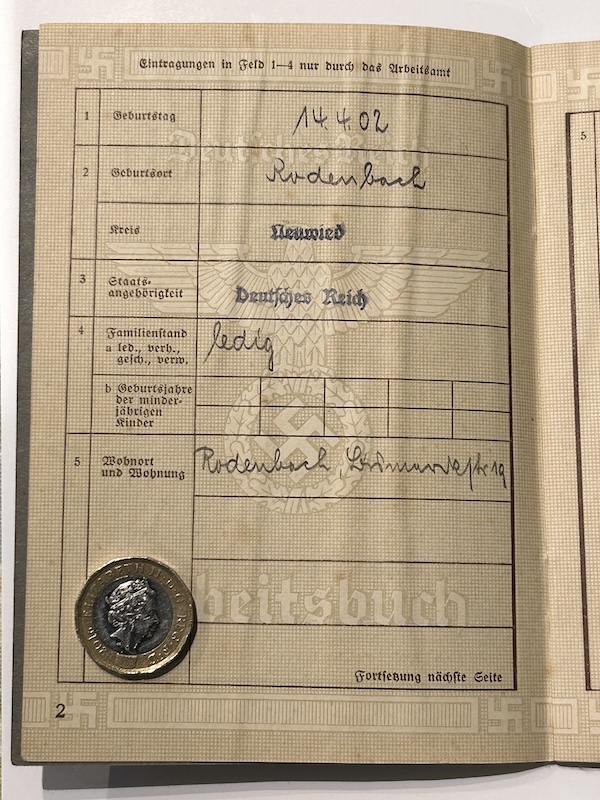 Eintragungen in Feld 1—4 nur durch das Arbeitsamt
1 Geburtstag 14.4.02
Deutsches Reich
2 Geburtsort Rodenbach
Kreis Neuwied
3 Staats-
angehörigkeit Deutsches Reich
4 Familienstand ledig
a led., verh.,
gesch., verw.
b Geburtsjahre
der minder-
jährigen
Kinder
5 Wohnort
und Wohnung Rodenbach, Bismarckstr 19
beitsbuch
Fortsetzung nächste Seite
2
5
ELIZABETH II